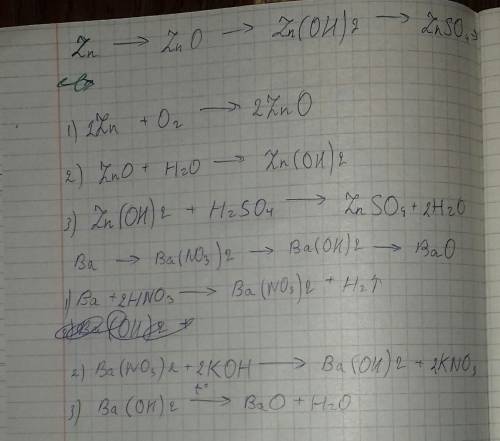 Zn → ZnO → Zn(OH)2 → ZnSO4
1) 2Zn + O2 → 2ZnO
2) ZnO + H2O → Zn(OH)2
3) Zn(OH)2 + H2SO4 → ZnSO4 + 2H2O
Ba → Ba(NO3)2 → Ba(OH)2 → BaO
1) Ba + 2HNO3 → Ba(NO3)2 + H2↑
2) Ba(NO3)2 + 2KOH → Ba(OH)2 + 2KNO3
3) Ba(OH)2 t° → BaO + H2O